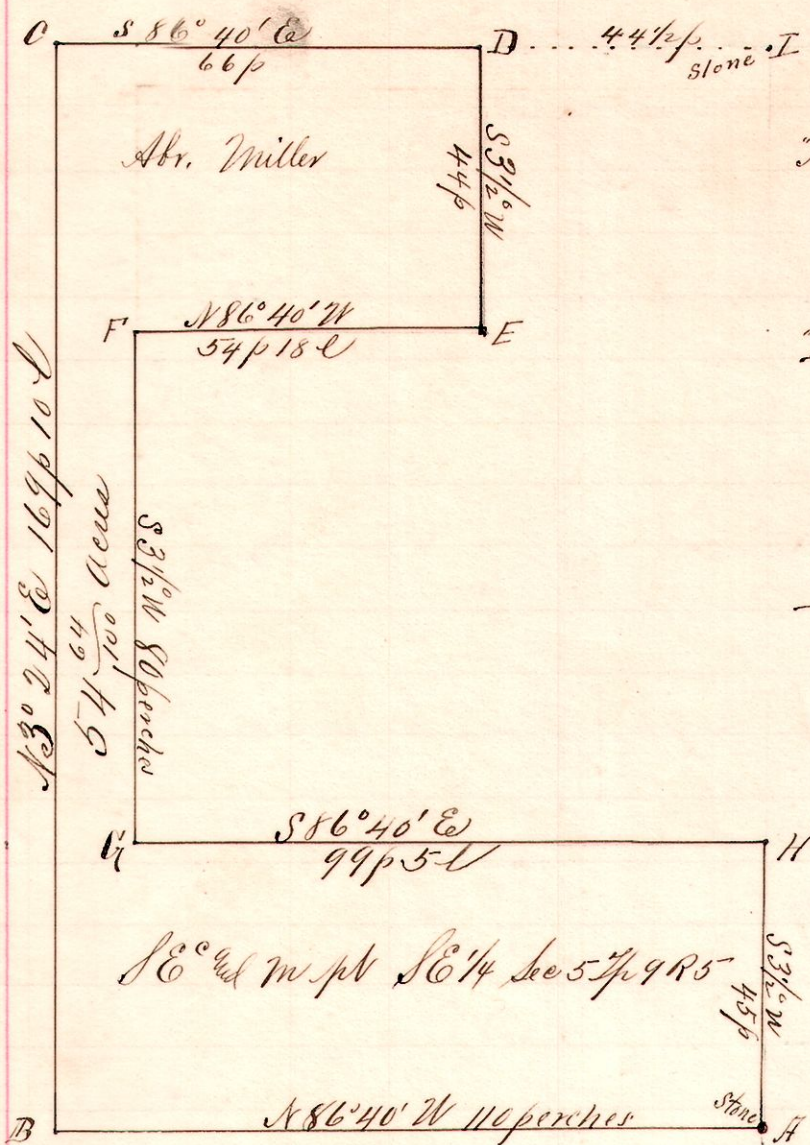 C S 86° 40' E D 44 1/2 p I
66 p Stone
Abr. Miller
S 3 1/2° W
44 p
F N 86° 40' W E
54 p 18 l
N 3° 24' E 169 p 10 l
54 49/100 Acres
S 3 1/2° W 80 perches
G S 86° 40' E H
99 p 5 l
pt SE 1/4 Sec 5 Tp 9 R 5
S 3 1/2° W
45 p
Stone
B N 86° 40' W 110 perches A